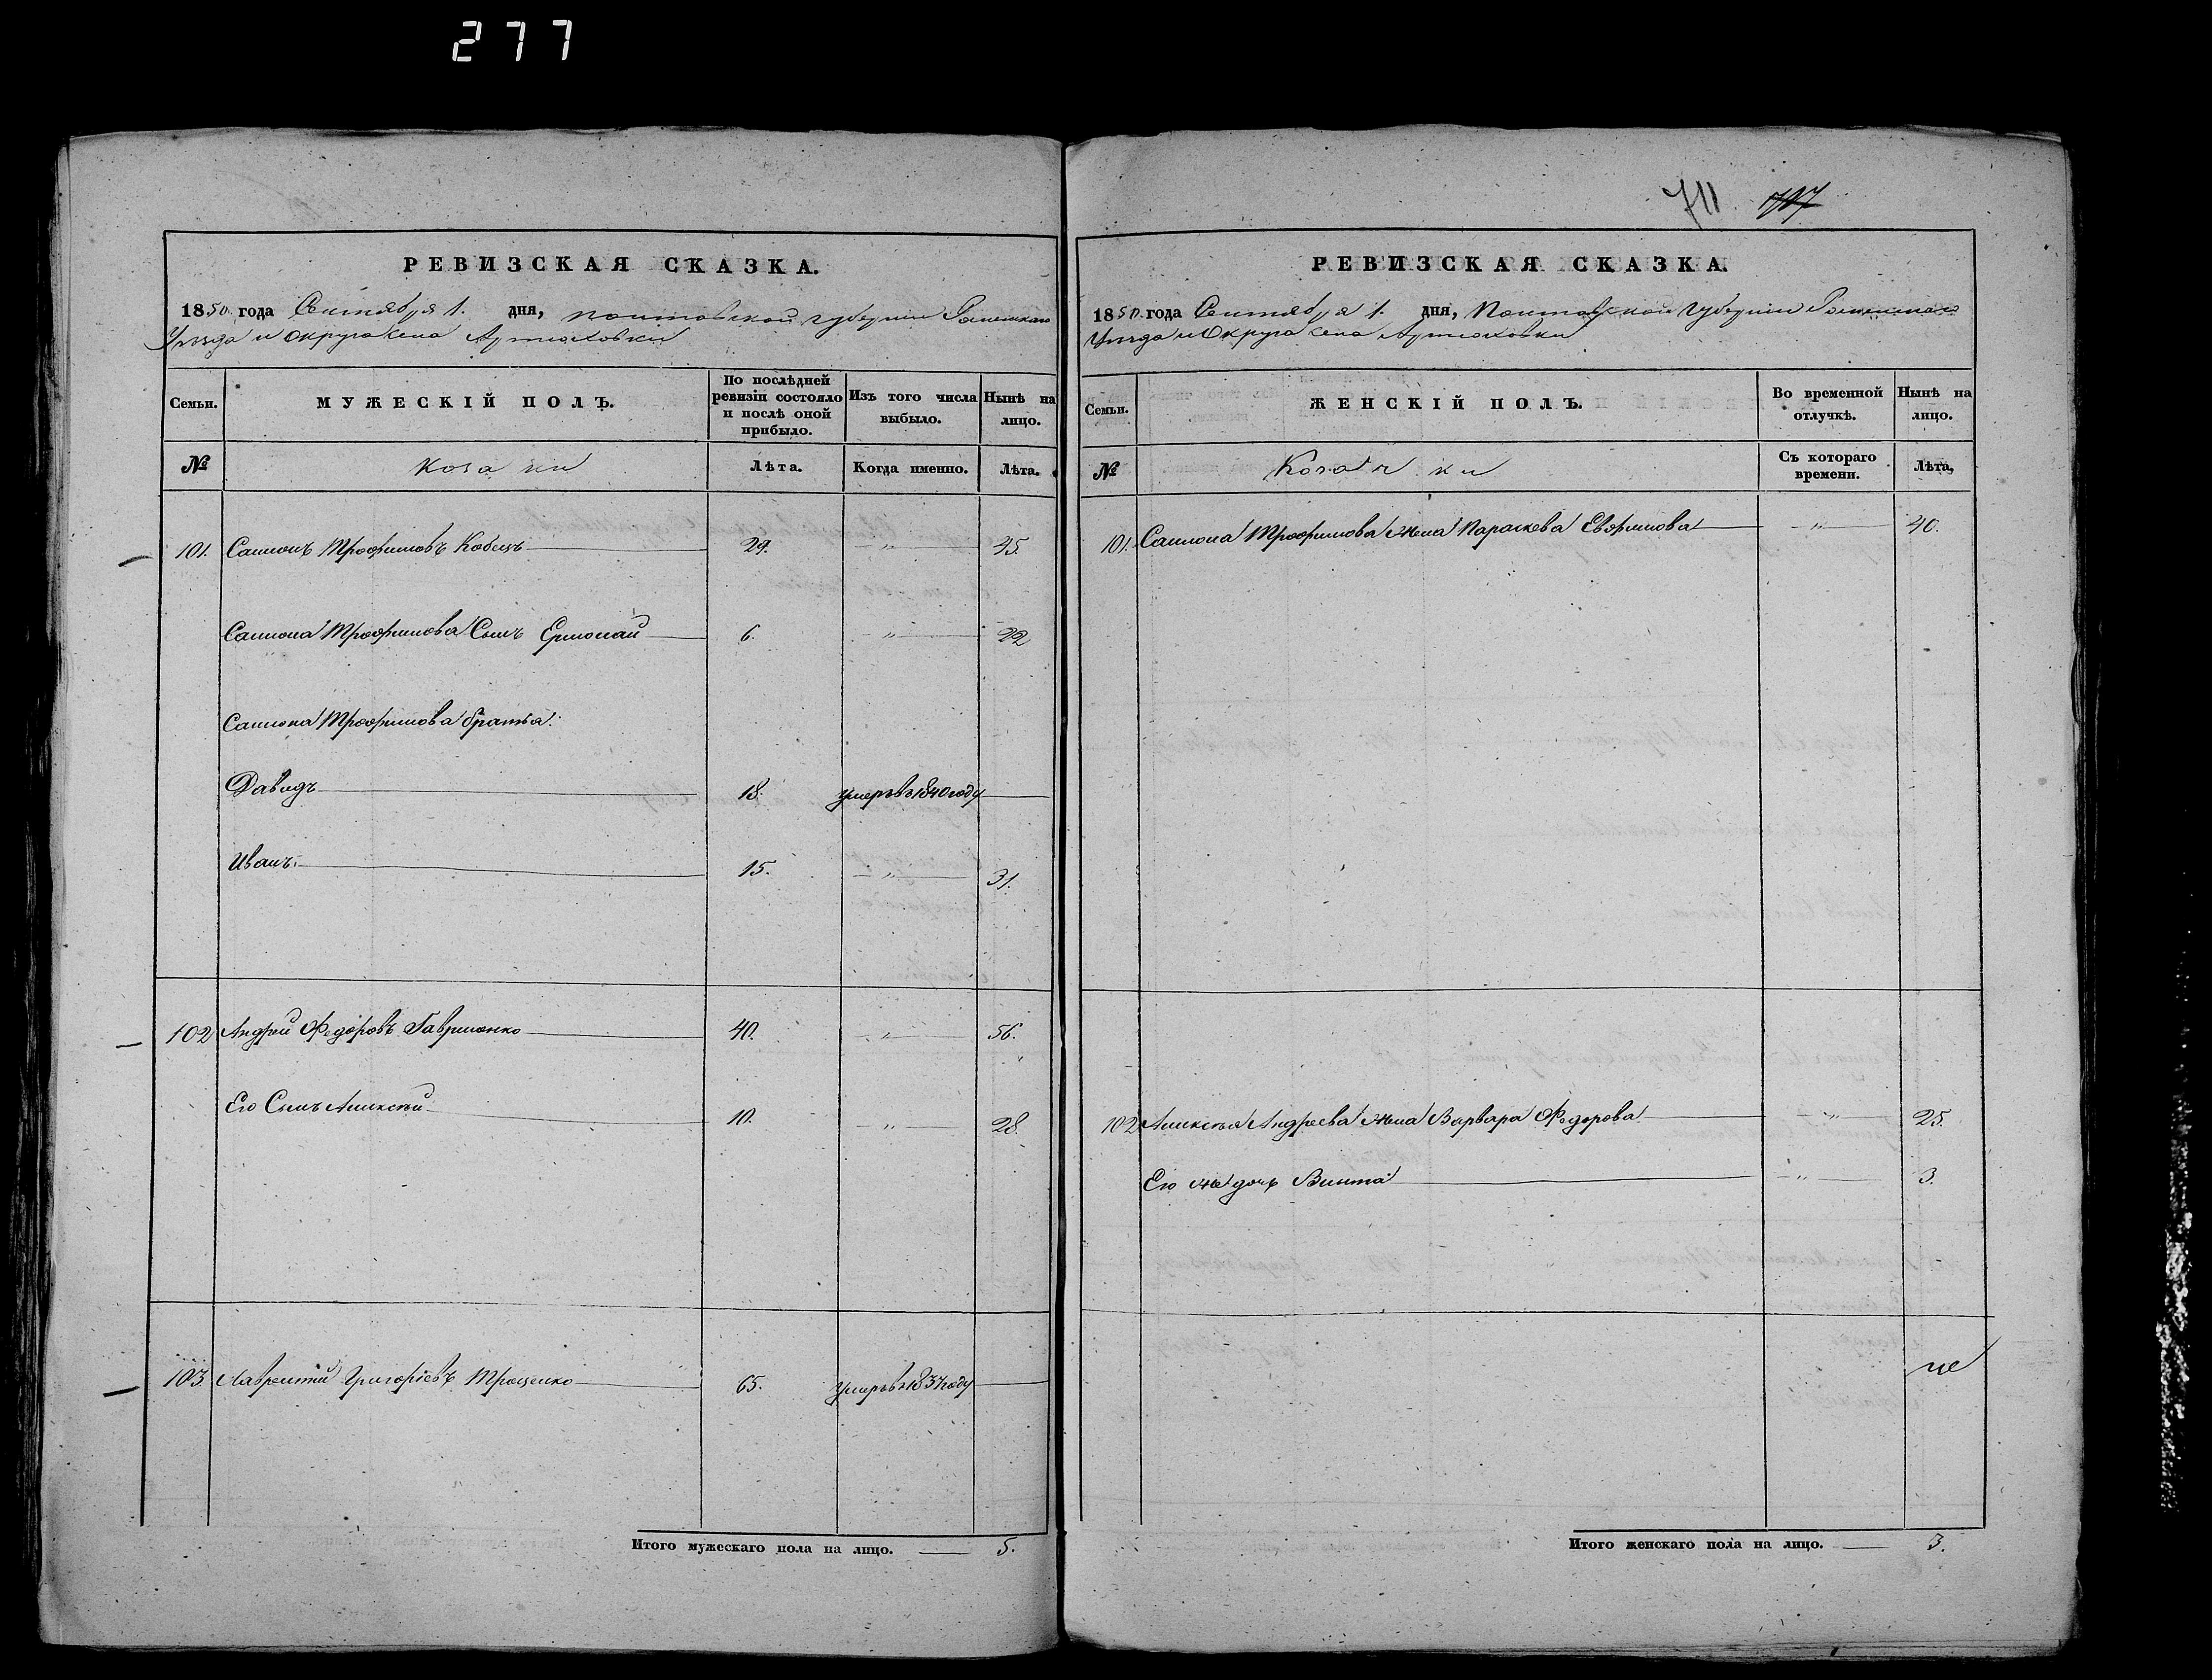 277
711 717
РЕВИЗСКАЯ СКАЗКА.
1850 года Сентября 1. дня, Полтавской губернiи Роменскаго
Уѣзда и Округа села Артюховки
Семьи. МУЖЕСКІЙ ПОЛЪ. По послѣдней ревизіи состояло и послѣ оной прибыло. Изъ того числа выбыло. Нынѣ на лицо.
№ Козаки Лѣта. Когда именно. Лѣта.
101. Самсонъ Трофимовъ Кобецъ 29. —„— 45.
Самсона Трофимова Сынъ Ермолай 6. —„— 22
Самсона Трофимова братья:
Давидъ 18. умеръ въ 1840 году —
Иванъ. 15. —„— 31.
102 Андрей Федоровъ Гавриленко 40. —„— 56.
Его Сынъ Алексѣй 10. —„— 28.
103. Лаврентій Григоріевъ Троценко 65. умеръ въ 1837 году —
Итого мужескаго пола на лицо. — 5.
РЕВИЗСКАЯ СКАЗКА.
1850 года Сентября 1. дня, Полтавской губернiи Роменскаго
Уѣзда и Округа села Артюховки
Семьи. ЖЕНСКІЙ ПОЛЪ. Во временной отлучкѣ. Нынѣ на лицо.
№ Козачки Съ котораго времени. Лѣта,
101. Самсона Трофимова жена Параскева Евфимова —„— 40.
102 Алексѣя Андреева жена Варвара Федорова —„— 25.
Его же дочь —„— 3.
Итого женскаго пола на лицо. — 3.